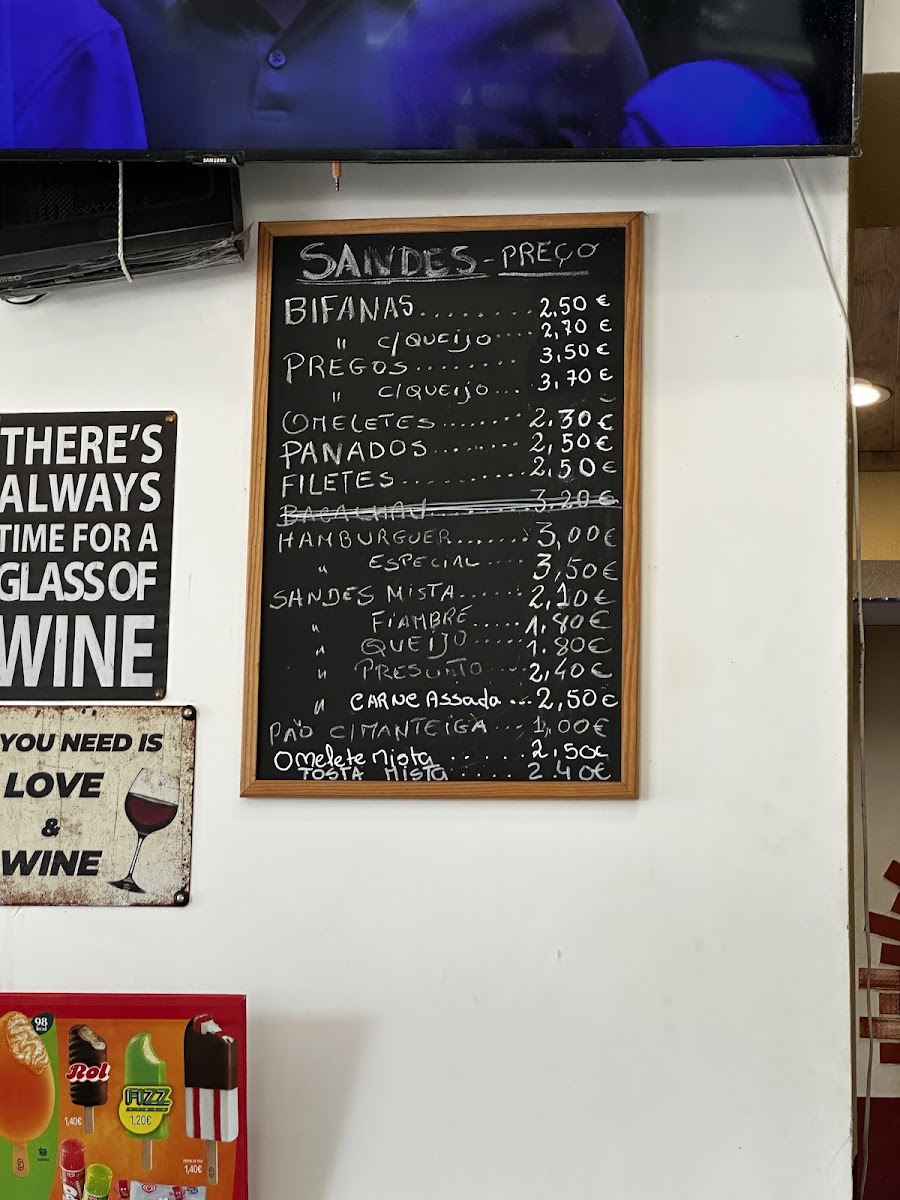 SAMSUNG
SANDES - PREÇO
BIFANAS......... 2.50 €
" c/QUEIJO.... 2,70 €
PREGOS........ 3,50 €
" c/QUEIJO... 3,70 €
OMELETES........ 2.30€
PANADOS........ 2,50€
FILETES......... 2.50€
BACALHAU........ 3,20€
HAMBURGUER....... 3,00€
" ESPECIAL.... 3,50€
SANDES MISTA...... 2,10€
" FIAMBRE..... 1.80€
" QUEIJO..... 1.80€
" PRESUNTO.... 2,40€
" CARNE Assada... 2,50€
PAÕ C/MANTEIGA... 1,00€
Omelete Mista..... 2,50€
TOSTA MISTA..... 2.40€
THERE'S
ALWAYS
TIME FOR A
GLASS OF
WINE
YOU NEED IS
LOVE
&
WINE
98
kcal
Rol
FIZZ
1,40€
1,20€
1,40€